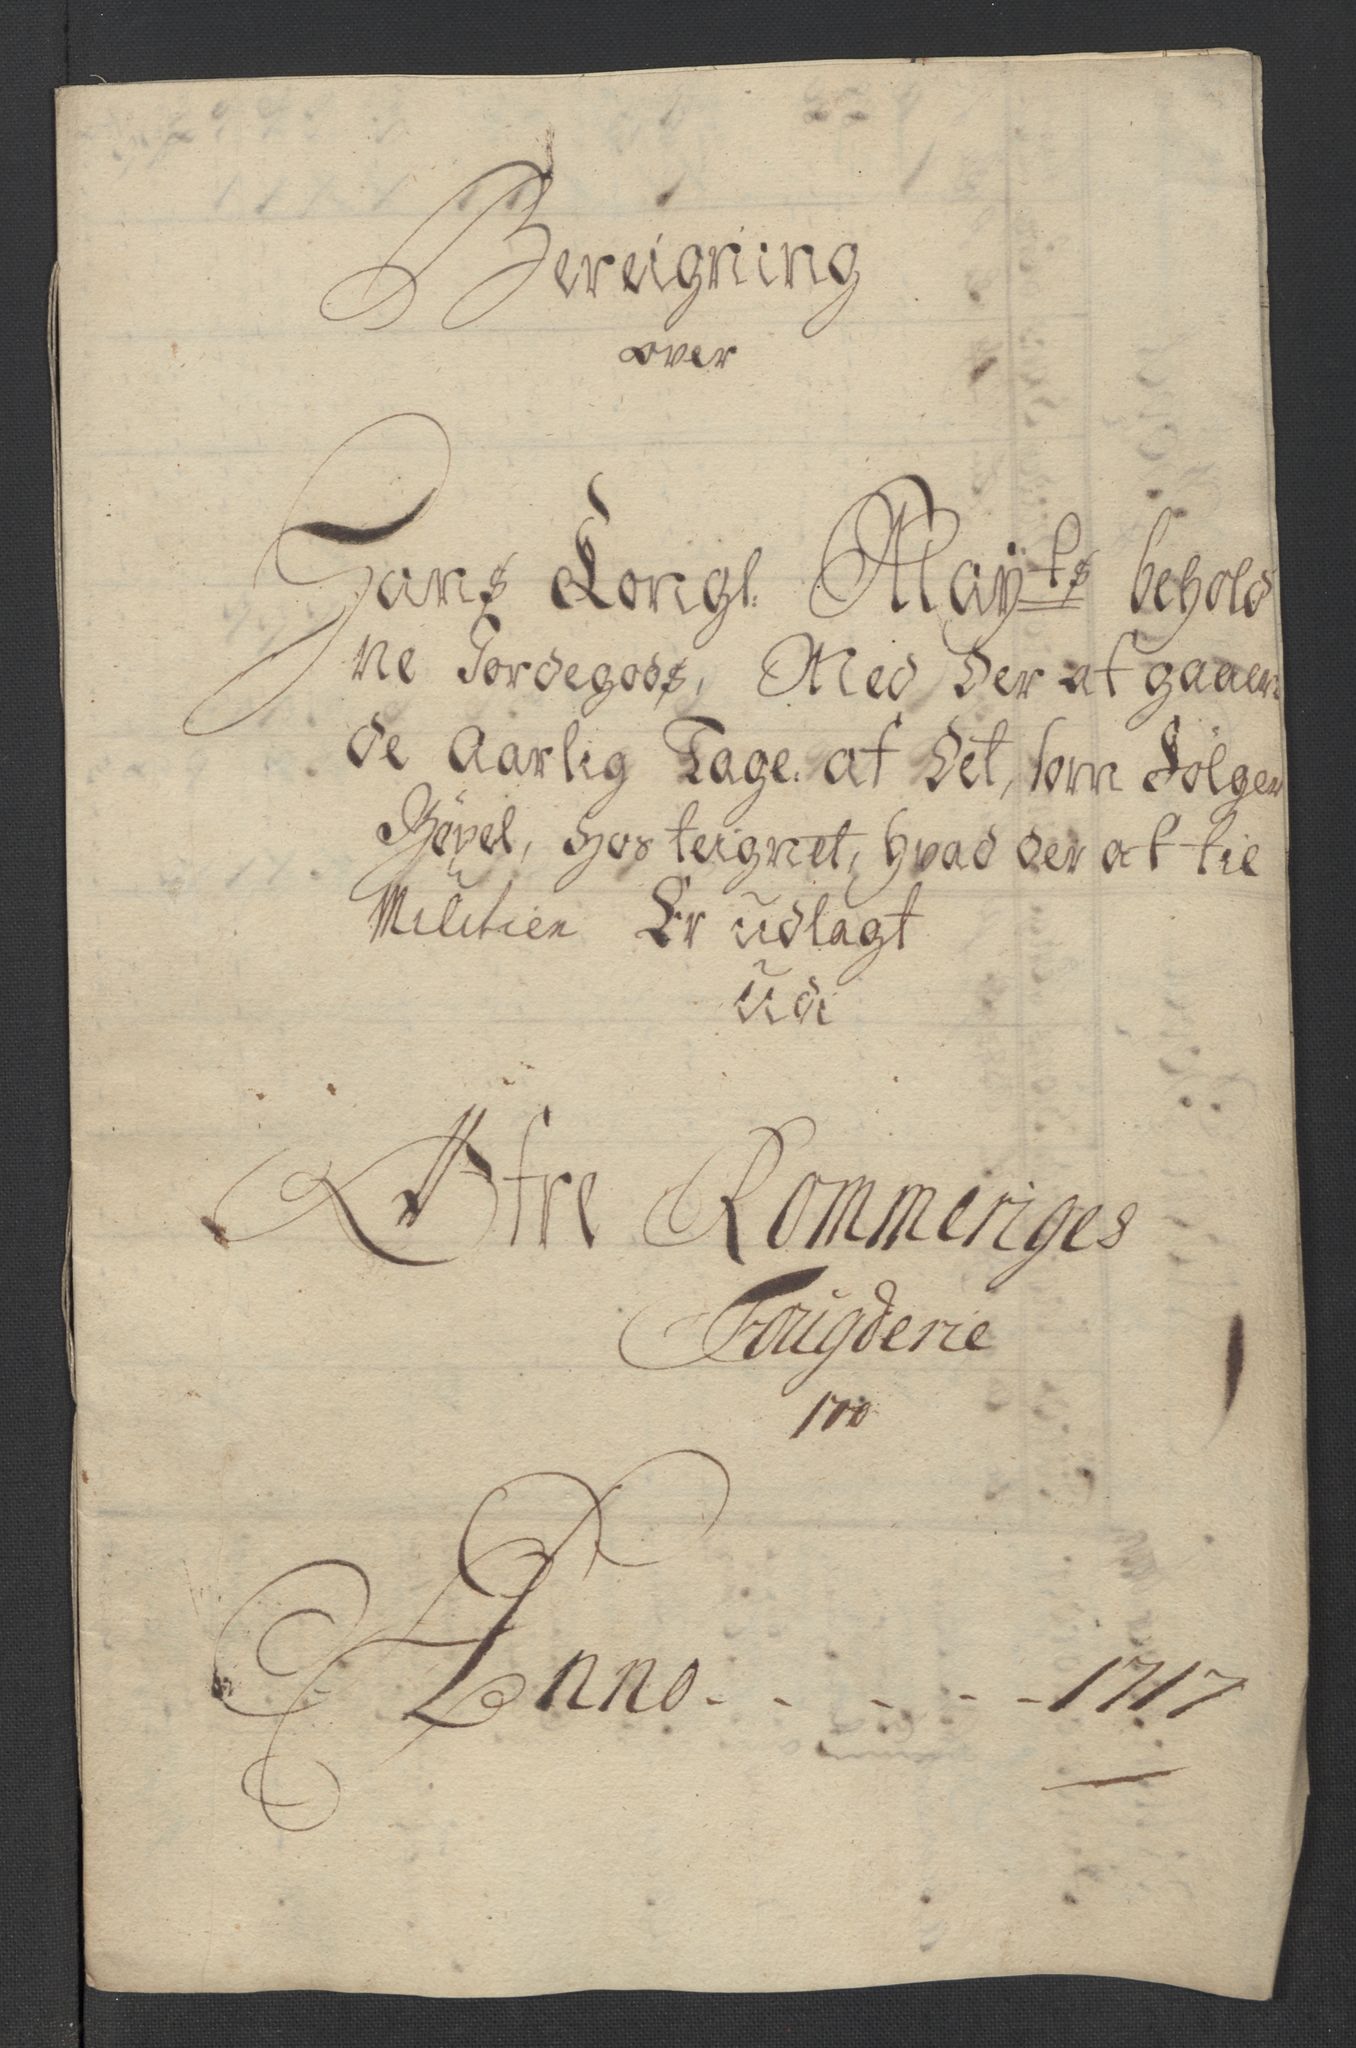 Bereigning
over
Hans Kongl: Maÿts behold
ne Jordegods, Med der af gaaen
de Aarlig Tage. af det, som Følger
hos teignet, hvad der af til
Militien Er udlagt
udi
Øfre Rommeriges
Fougderie
pro
Anno - - - - - 1717